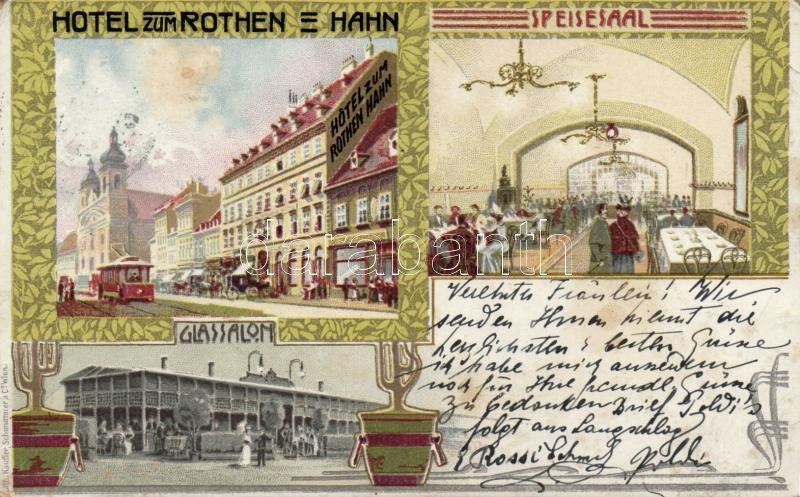 HOTEL ZUM ROTHEN HAHN
SPEISESAAL
HOTEL ZUM
ROTHEN HAHN
darabanth
GLASSALON
Verehrtes Fräulein! Wir
senden Ihnen hiemit die
herzlichsten & besten Grüsse
ich habe mich
noch für Ihre Grüsse
zu Brief Poldi's
folgt aus Langschlag
Rossi Schmid Poldi
Kaufler Schmutterer & Co Wien.